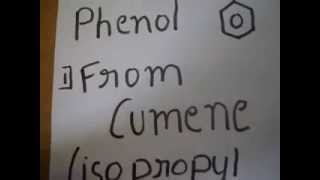 Phenol
1] From
Cumene
(isopropyl